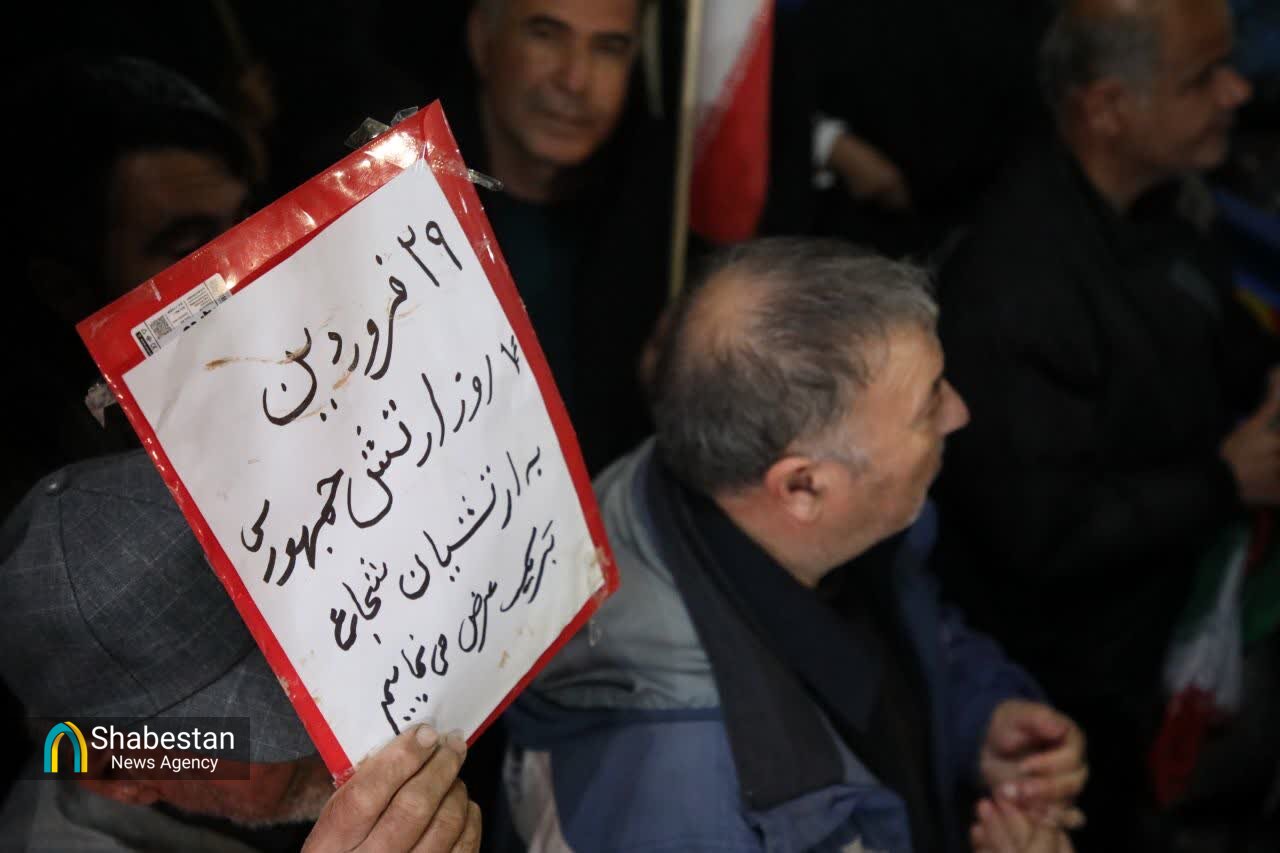 ۲۹ فروردین
روز ارتش جمهوری
به ارتشیان شجاع
تبریک عرض می نماییم
Shabestan
News Agency